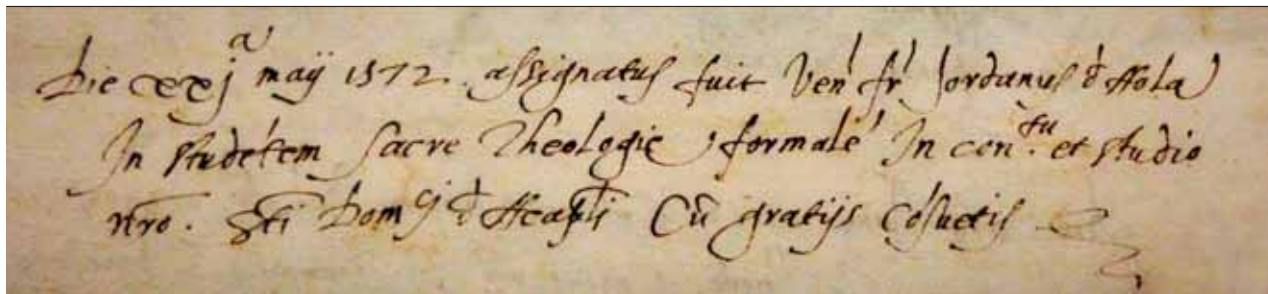 Die xxj^a maij 1572. assignatus fuit Ven^l fr^ Jordanus d Nola
In studētem sacre Theologie, formalē In con.^tu et studio
nr̄o. Sti Dom^cj d Neapli Cū gratijs Cōsuetis